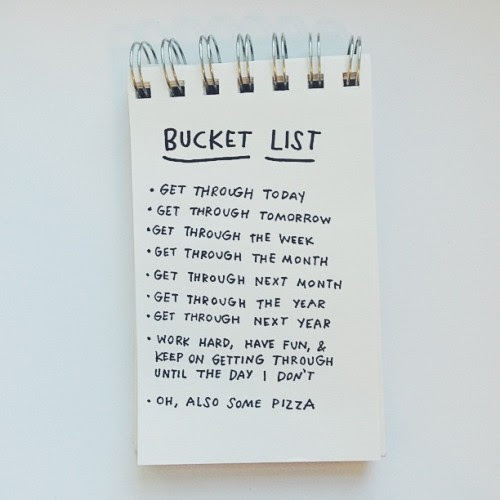 BUCKET LIST
• GET THROUGH TODAY
• GET THROUGH TOMORROW
• GET THROUGH THE WEEK
• GET THROUGH THE MONTH
• GET THROUGH NEXT MONTH
• GET THROUGH THE YEAR
• GET THROUGH NEXT YEAR
• WORK HARD, HAVE FUN, &
KEEP ON GETTING THROUGH
UNTIL THE DAY I DON'T
• OH, ALSO SOME PIZZA